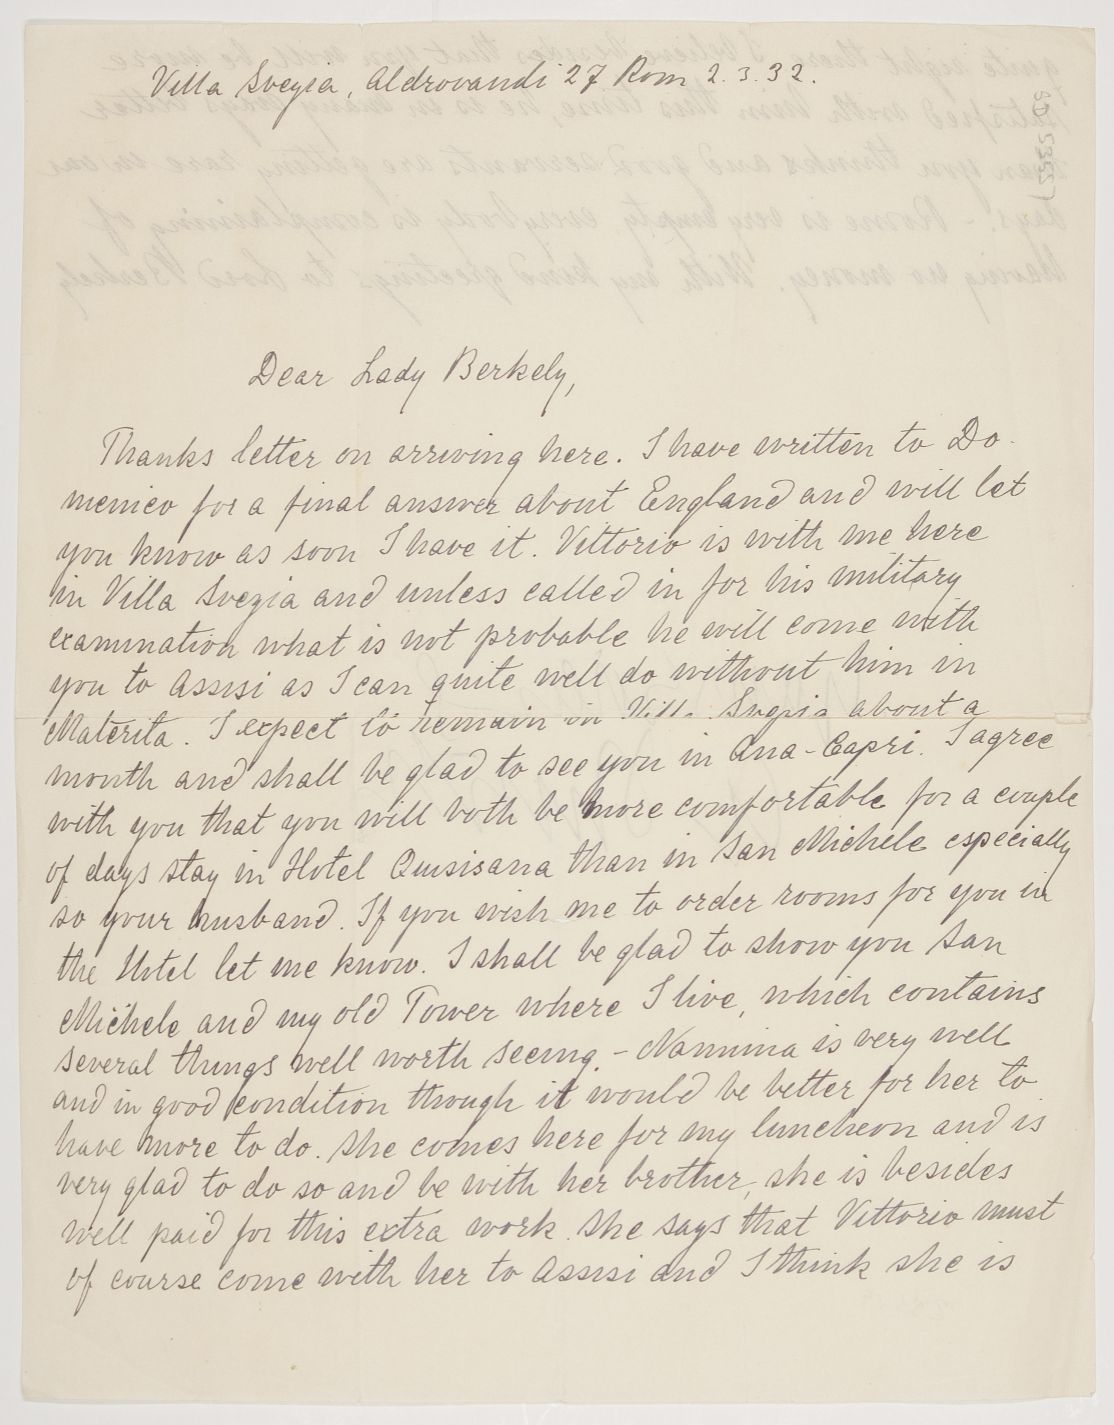 Villa Svezia, Aldrovandi 27 Rom 2.3.32.
Dear Lady Berkely,
Thanks letter on arriving here. I have written to Do-
menico for a final answer about England and will let
you know as soon I have it. Vittorio is with me here
in Villa Svezia and unless called in for his military
examination what is not probable he will come with
you to Assisi as I can quite well do without him in
Materita. I expect to remain in Villa Svezia about a
month and shall be glad to see you in Ana-Capri. I agree
with you that you will both be more comfortable for a couple
of days stay in Hotel Quisisana than in San Michele especially
so your husband. If you wish me to order rooms for you in
the Hotel let me know. I shall be glad to show you San
Michele and my old Tower where I live, which contains
several things well worth seeing. - Nannina is very well
and in good condition though it would be better for her to
have more to do. She comes here for my luncheon and is
very glad to do so and be with her brother, she is besides
well paid for this extra work. She says that Vittorio must
of course come with her to Assisi and I think she is